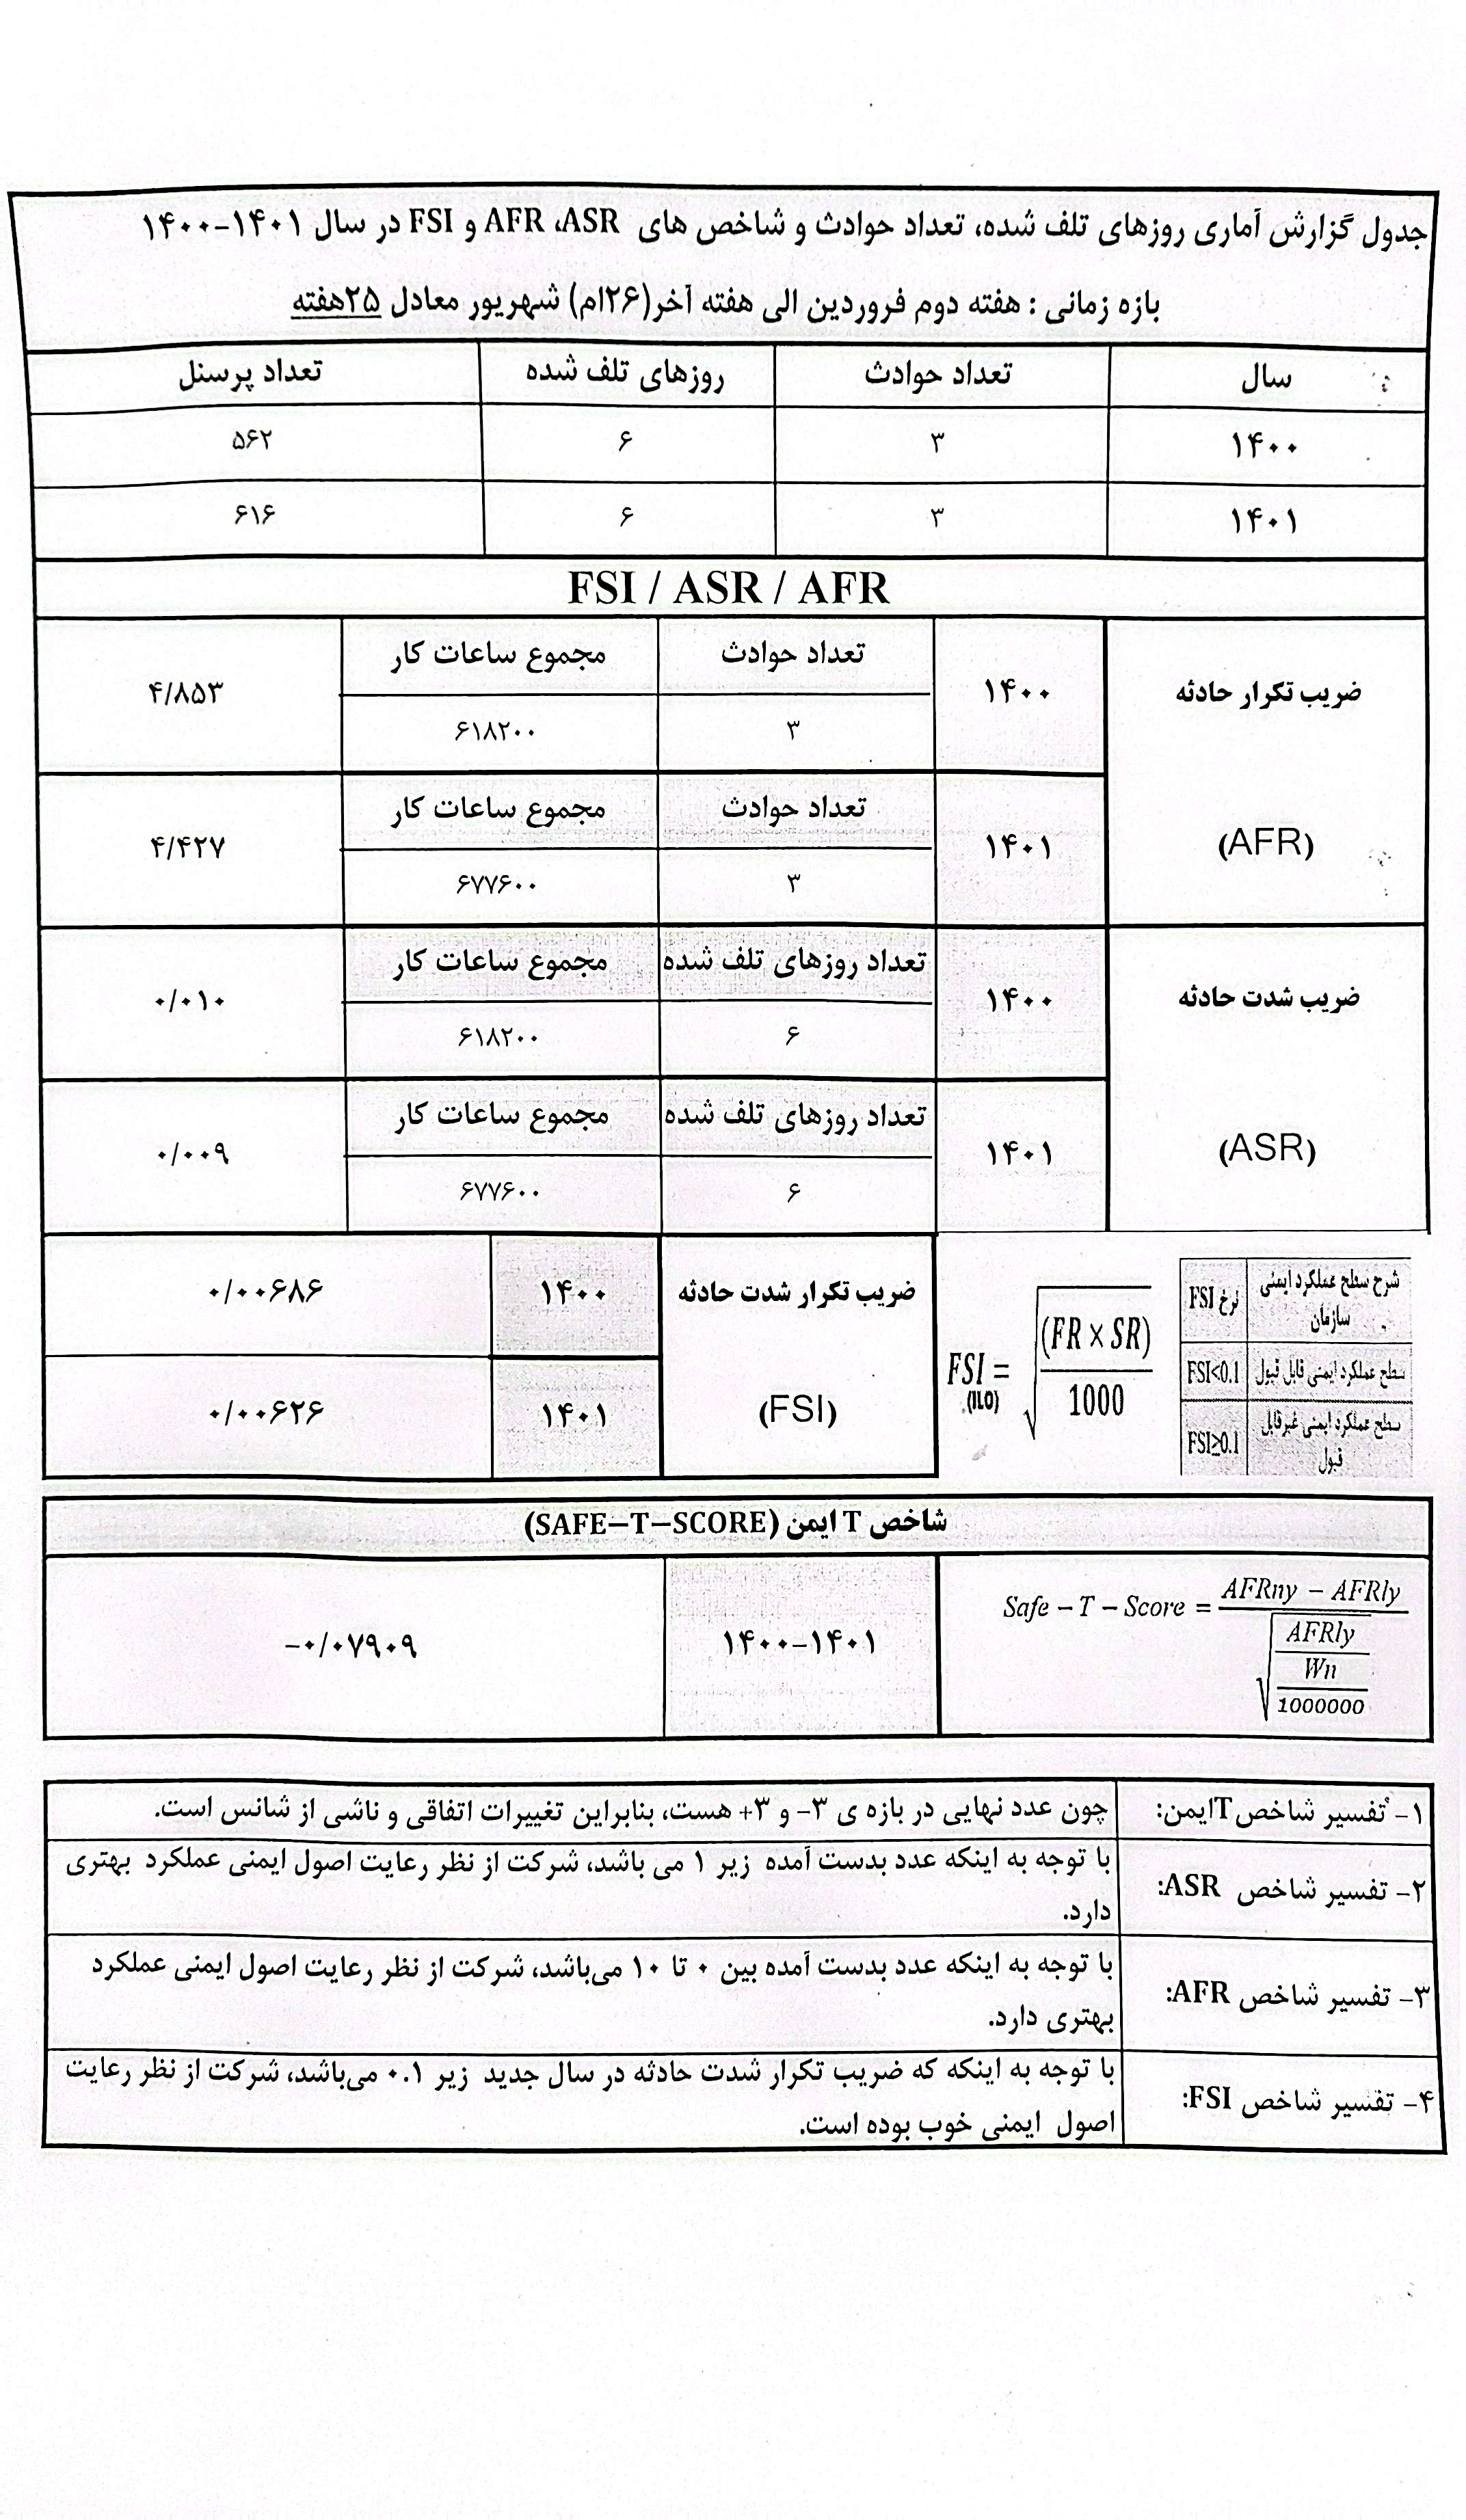 جدول گزارش آماری روزهای تلف شده، تعداد حوادث و شاخص های AFR ،ASR و FSI در سال ۱۴۰۱-۱۴۰۰
بازه زمانی : هفته دوم فروردین الی هفته آخر(۲۶ام) شهریور معادل ۲۵هفته
سال تعداد حوادث روزهای تلف شده تعداد پرسنل
۱۴۰۰ ۳ ۶ ۵۶۲
۱۴۰۱ ۳ ۶ ۶۱۶
FSI / ASR / AFR
ضریب تکرار حادثه
(AFR)
۱۴۰۰ تعداد حوادث مجموع ساعات کار ۴/۸۵۳
۳ ۶۱۸۲۰۰
۱۴۰۱ تعداد حوادث مجموع ساعات کار ۴/۴۲۷
۳ ۶۷۷۶۰۰
ضریب شدت حادثه
(ASR)
۱۴۰۰ تعداد روزهای تلف شده مجموع ساعات کار ۰/۰۱۰
۶ ۶۱۸۲۰۰
۱۴۰۱ تعداد روزهای تلف شده مجموع ساعات کار ۰/۰۰۹
۶ ۶۷۷۶۰۰
شرح سطح عملکرد ایمنی سازمان نرخ FSI
سطح عملکرد ایمنی قابل قبول FSI<0.1
سطح عملکرد ایمنی غیرقابل قبول FSI≥0.1
FSI = √((FR × SR) / 1000)
(ILO)
ضریب تکرار شدت حادثه
(FSI)
۱۴۰۰ ۰/۰۰۶۸۶
۱۴۰۱ ۰/۰۰۶۲۶
شاخص T ایمن (SAFE–T–SCORE)
Safe – T – Score = AFRny – AFRly
AFRly
Wn
1000000
۱۴۰۰-۱۴۰۱
-۰/۰۷۹۰۹
۱- تفسیر شاخص Tایمن: چون عدد نهایی در بازه ی ۳- و ۳+ هست، بنابراین تغییرات اتفاقی و ناشی از شانس است.
۲- تفسیر شاخص ASR: با توجه به اینکه عدد بدست آمده زیر ۱ می باشد، شرکت از نظر رعایت اصول ایمنی عملکرد بهتری
دارد.
۳- تفسیر شاخص AFR: با توجه به اینکه عدد بدست آمده بین ۰ تا ۱۰ می‌باشد، شرکت از نظر رعایت اصول ایمنی عملکرد
بهتری دارد.
۴- تفسیر شاخص FSI: با توجه به اینکه که ضریب تکرار شدت حادثه در سال جدید زیر ۰.۱ می‌باشد، شرکت از نظر رعایت
اصول ایمنی خوب بوده است.